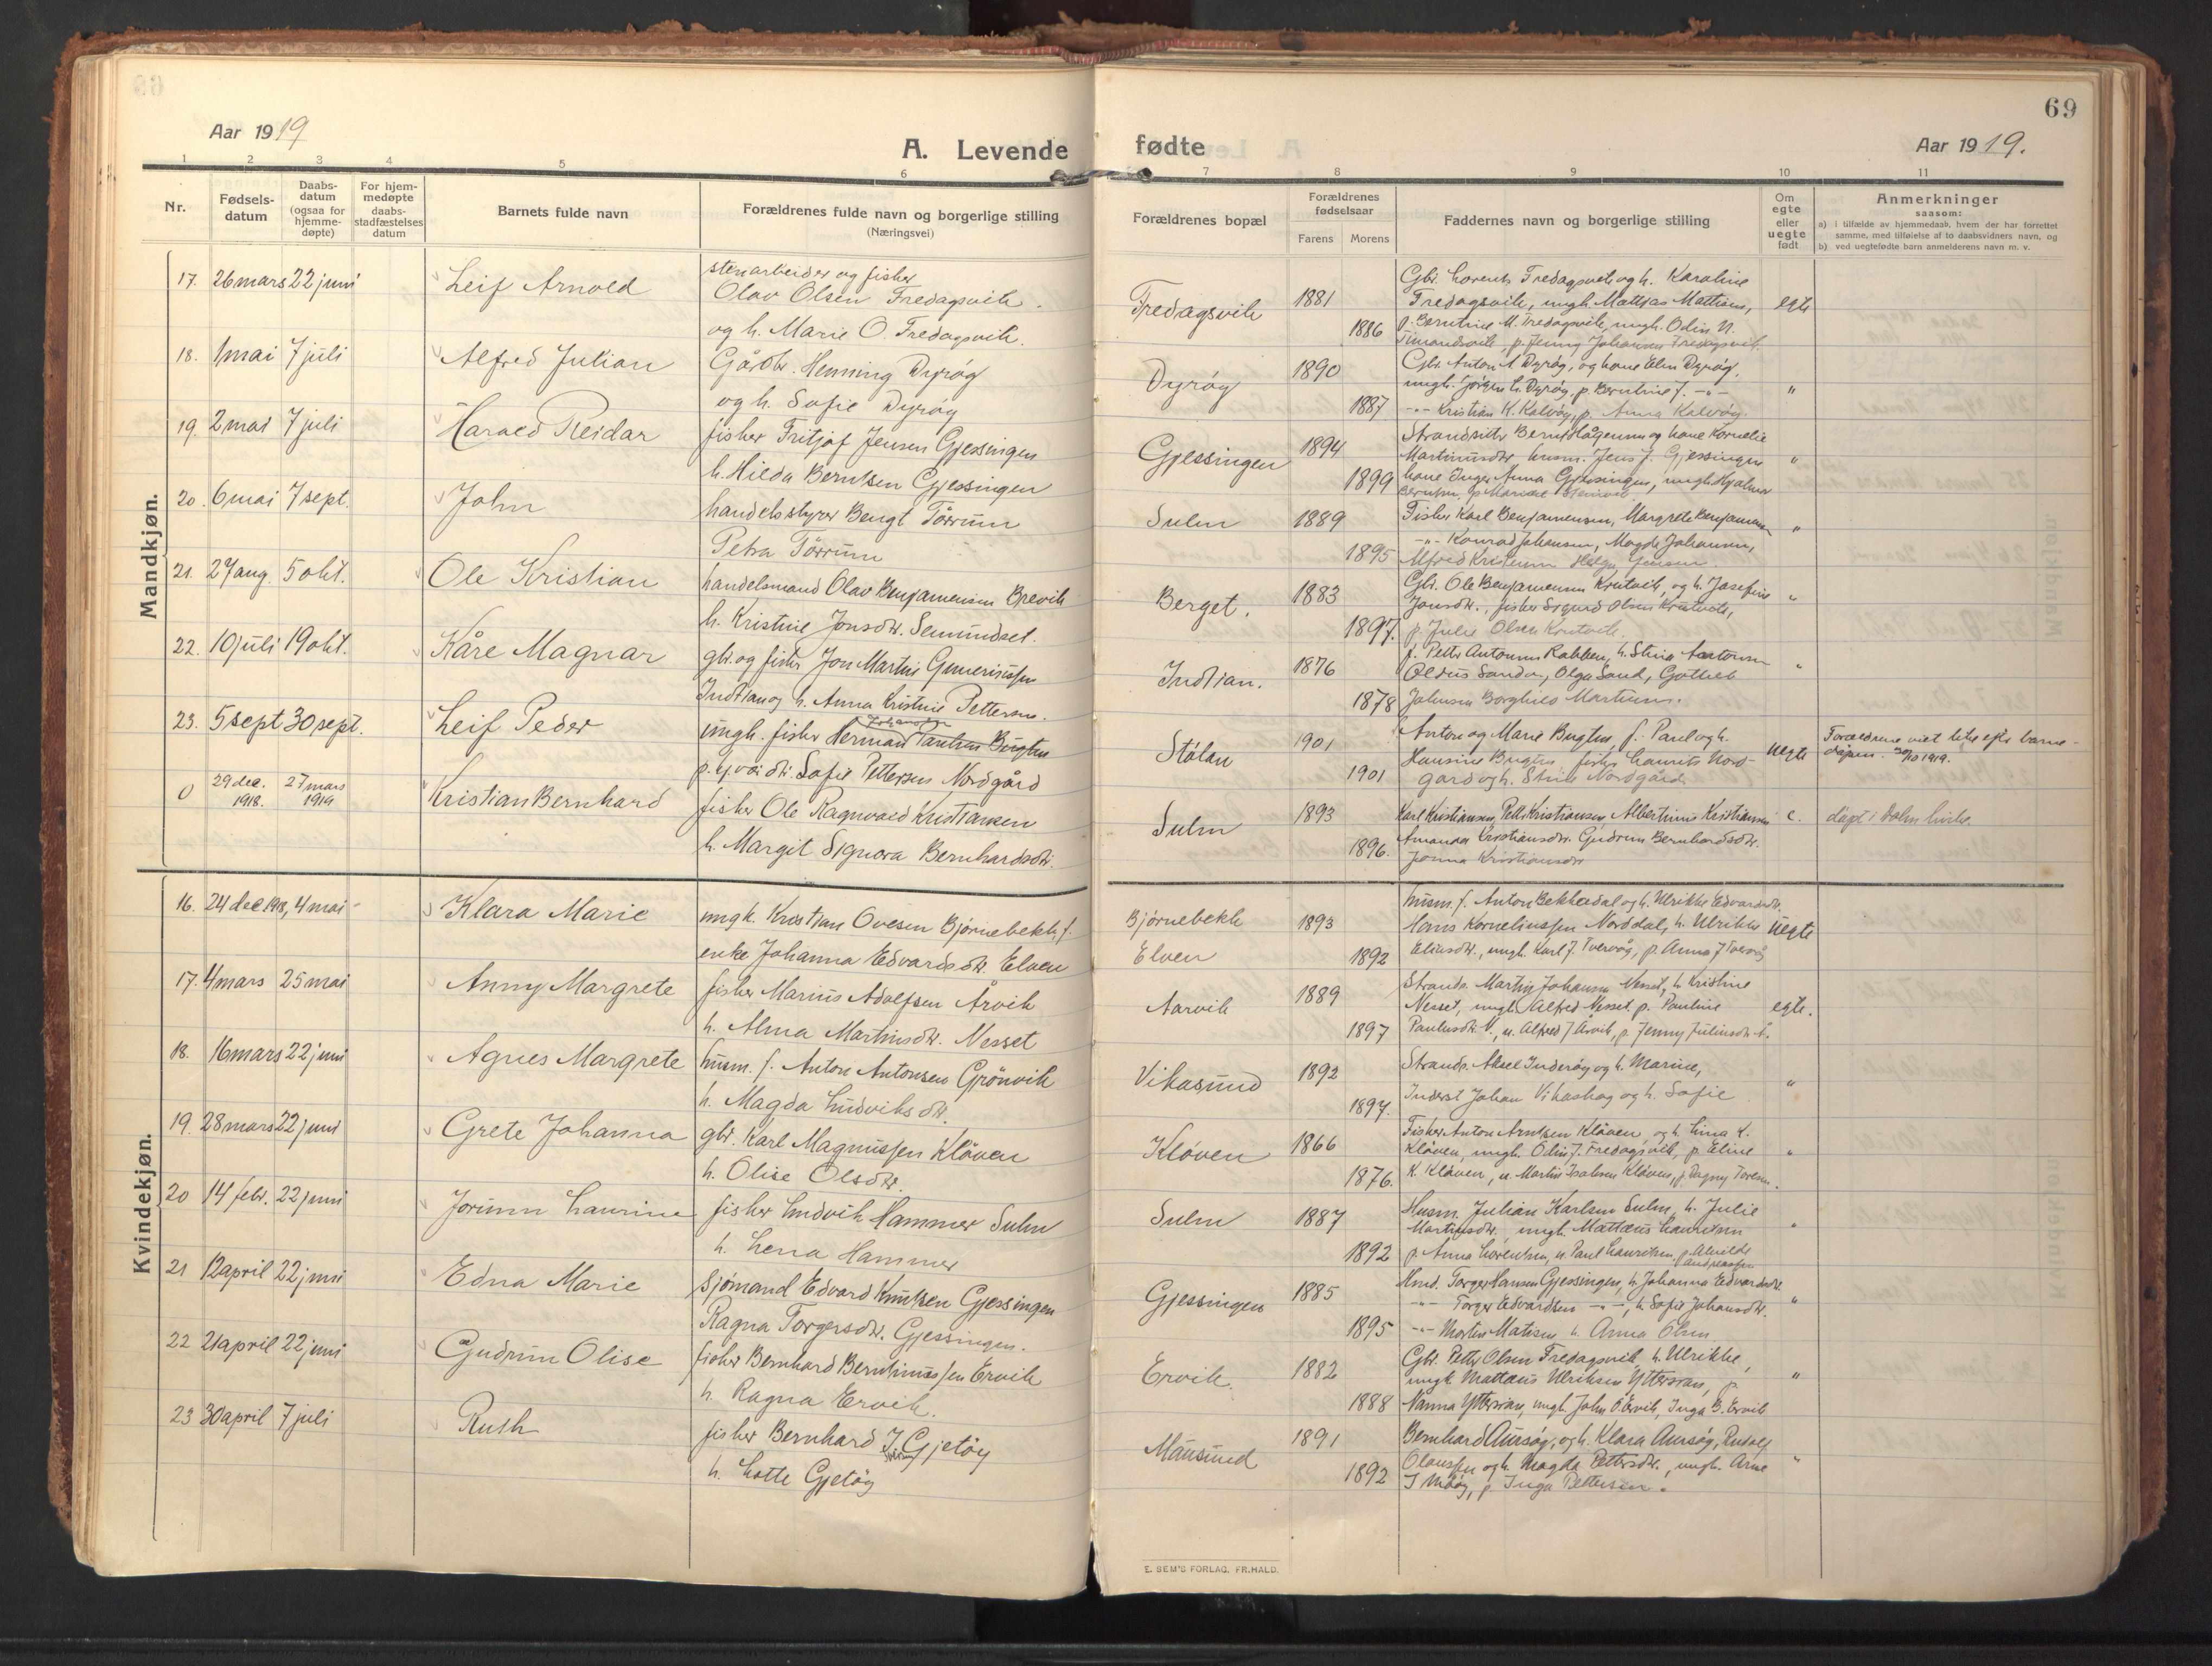 69
Aar 1919
A. Levende
fødte
Aar 1919.
1 2 3 4 5 6
7 8 9 10 11
Nr.
Fødsels-
datum
Daabs-
datum
(ogsaa for
hjemme-
døpte)
For hjem-
medøpte
daabs-
stadfæstelses
datum
Barnets fulde navn
Forældrenes fulde navn og borgerlige stilling
(Næringsvei)
Forældrenes bopæl
Forældrenes
fødselsaar
Farens Morens
Faddernes navn og borgerlige stilling
Om
egte
eller
uegte
født
Anmerkninger
saasom:
a) i tilfælde av hjemmedaab, hvem der har forrettet
samme, med tilføielse af to daabsvidners navn, og
b) ved uegtefødte barn anmelderens navn m. v.
Mandkjøn.
17. 26 mars 22 juni Leif Arnold
stenarbeider og fisker
Olav Olsen Fredagsvik.
og h. Marie O. Fredagsvik.
Fredagsvik 1881 1886
Gbr. Lorents Fredagsvik og h. Karoline
Fredagsvik, ungk. Mattias Mattisen,
p. Berntine M. Fredagsvik, ungk. Odin N.
p. Jenny Johansen Fredagsvik.
egte
18. 1 mai 7 juli Alfred Julian
Gårdbr. Henning Dyrøy
og h. Sofie Dyrøy
Dyrøy 1890 1887
Gbr. Anton A Dyrøy, og kone Elen Dyrøy,
ungk. Jørgen L. Dyrøy, p. Berntine J. -"-
-"- Kristian K. Kalvøy, p. Anna Kalvøy.
"
19. 2 mai 7 juli Harald Reidar
fisker Fritjof Jensen Gjessingen
h. Hilda Berntsen Gjessingen
Gjessingen 1894 1899
Strandsitter Bernt Hågensen og kone Kornelie
Martinusdtr. husm. Jens J. Gjessingen
kone Inger Anna Gjessingen, ungk. Hjalmar
Berntsen, p. Marie
"
20. 6 mai 7 sept. John
handelsstyrer Bengt Törrum
Petra Törrum
Sulm 1889 1895
Fisker Karl Benjamensen, Margrete Benjamensen
-"- Konrad Johansen, Magda Johansen,
Alfred Kristensen Helga Jensen
"
21. 27 aug. 5 okt. Ole Kristian
handelsmand Olav Benjamensen Brevik
h. Kristine Jonsdtr. Semundset.
Berget. 1883 1897.
Gbr. Ole Benjamensen Krutvik, og h. Josefine
Jonsdtr., fisker Sigurd Olsen Krutvik,
p. Julie Olsen Krutvik.
"
22. 10 juli 19 okt. Kåre Magnar
gbr. og fisker Jon Martin
Indtian og h. Anna Kristine Pettersen.
Indtian. 1876 1878
f. Petter Antonsen Rabben, h. Stina Antonsen
Sandø, Olga Sand, Gotlieb
Johnsen Borghild Martinsen.
"
23. 5 sept 30 sept. Leif Peder
Johansen
ungk. fisker Herman Paulsen Bugten
p. Sofie Pettersen Nordgård
Stølan 1901 1901
Anton og Marie Bugten f. Paul og h.
Hansine Bugten, fisker Laurits Nord-
gard og h. Stine Nordgård
uegte
Foreldrene viet like efter barne-
dåpen. 30/10 1919.
0 29 dec. 1918. 27 mars 1919 Kristian Bernhard
fisker Ole Ragnvald Kristiansen
h. Margit Signora Bernhardsdtr.
Sulm 1893 1896.
Karl Kristiansen, Petter Kristiansen Albertine Kristiansen
Amanda Kristiansdtr. Gudrun Bernhardsdtr.
Jonna Kristiansdtr
e.
døpt i Dolm kirke.
Kvindekjøn.
16. 24 dec 1918, 4 mai Klara Marie
ungk. Kristian Ovesen Bjørnebekk, f.
enke Johanna Edvardsdtr. Elven
Bjørnebekk
Elven 1893 1892
husm. f. Anton Bekkedal og h. Ulrikke Edvardsdtr.
Hans Korneliussen Norddal, h. Ulrikke
Eliasdtr., ungk. Karl J. Tvervåg, p. Anna J Tvervåg
Uegte
17. 4 mars 25 mai Anny Margrete
fisker Marius Adolfsen Årvik
h. Alma Martinsdtr. Nesset
Aarvik 1889 1897
Strands. Martin Johansen Nesset, h. Kristine
Nesset, ungk. Alfred Nesset p. Pauline
Paulusdtr. N., u. Alfred J Årvik, p. Jenny Juliusdtr. Å.
egte.
18. 16 mars 22 juni Agnes Margrete
husm. f. Anton Antonsen Grönvik
h. Magda Ludviksdtr.
Vikasund 1892 1897.
Strands. Aksel Inderøy og h. Marine,
Inderst Johan Vikaskag og h. Sofie
"
19. 28 mars 22 juni Grete Johanna
gbr. Karl Magnussen Kløven
h. Olise Olsdtr.
Kløven 1866 1876.
Fisker Anton Arntsen Kløven, og h. Lina K.
Kløven, ungk. Odin J. Fredagsvik, p. Eline
K. Kløven, u. Martin Isaksen Kløven, p. Dagny Toresen.
"
20 14 febr. 22 juni Jorunn Laurine
fisker Ludvik Hammer Sulm
h. Lena Hammer
Sulm 1887 1892
Husm. Julian Karlsen Sulm, h. Julie
Martinsdtr., ungk. Matteus Lauritsen
p. Anna Lorentsen, u. Paul Lauritsen, p. Alvilde
Andreassen
"
21 12 april 22 juni Edna Marie
Sjømand Edvard Knutsen Gjessingen
Ragna Torgersdtr. Gjessingen.
Gjessingen 1885 1895
Hmd. Torger Hansen Gjessingen, h. Johanna Edvardsdtr.
-"- Torger Edvardsen -"-, h. Sofie Johansdtr.
-"- Morten Matisen h. Anna Olsen
"
22 21 april 22 juni Gudrun Olise
fisker Bernhard Berntinussen Ervik
h. Ragna Ervik.
Ervik. 1882 1888
Gbr. Petter Olsen Fredagsvik, h. Ulrikke,
ungk. Matteus Ulriksen Ytterran, p.
Nanna Ytterran, ungk. John O. Ervik, Inga B. Ervik
"
23 30 april 7 juli Ruth
fisker Bernhard J. Gjetøy
h. Lotte Gjetøy
Mausund 1891 1892
Bernhard Aursøy, og h. Klara Aursøy, Rudolf
Olaussen og h. Magda Pettersdtr., ungk. Arne
J Måøy, p. Inga Pettersen.
"
E. SEM'S FORLAG, FR.HALD.